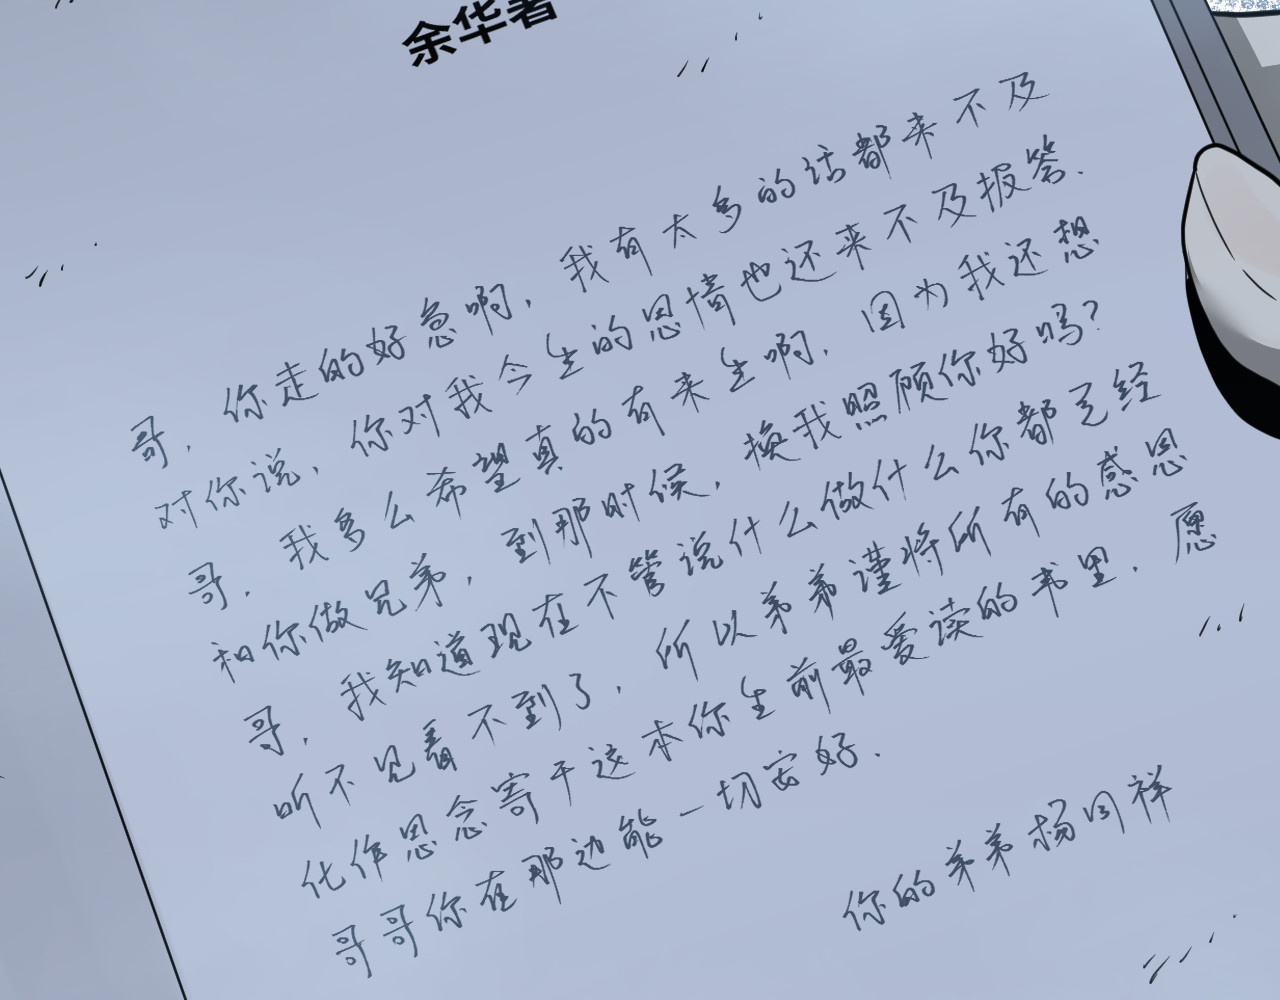 余华著
哥，你走的好急啊，我有太多的话都来不及
对你说，你对我今生的恩情也还来不及报答．
哥，我多么希望真的有来生啊，因为我还想
和你做兄弟，到那时候，换我照顾你好吗？
哥，我知道现在不管说什么做什么你都已经
听不见看不到了，所以弟弟谨将所有的感恩
化作思念寄于这本你生前最爱读的书里．愿
哥哥你在那边能一切安好．
你的弟弟杨同祥